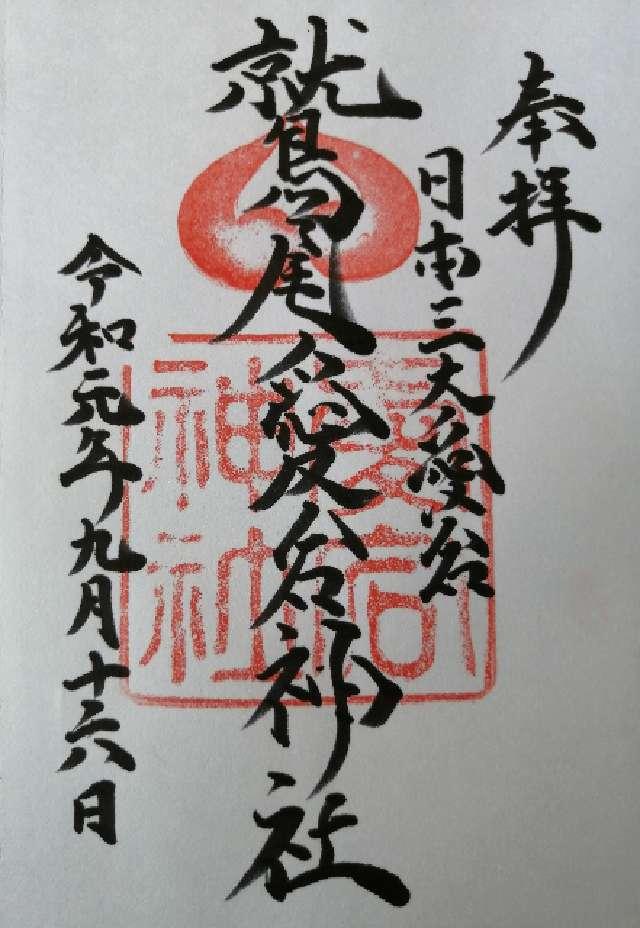 奉拝
日本三大愛宕
鷲尾愛宕神社
令和元年九月十六日
愛宕
神社